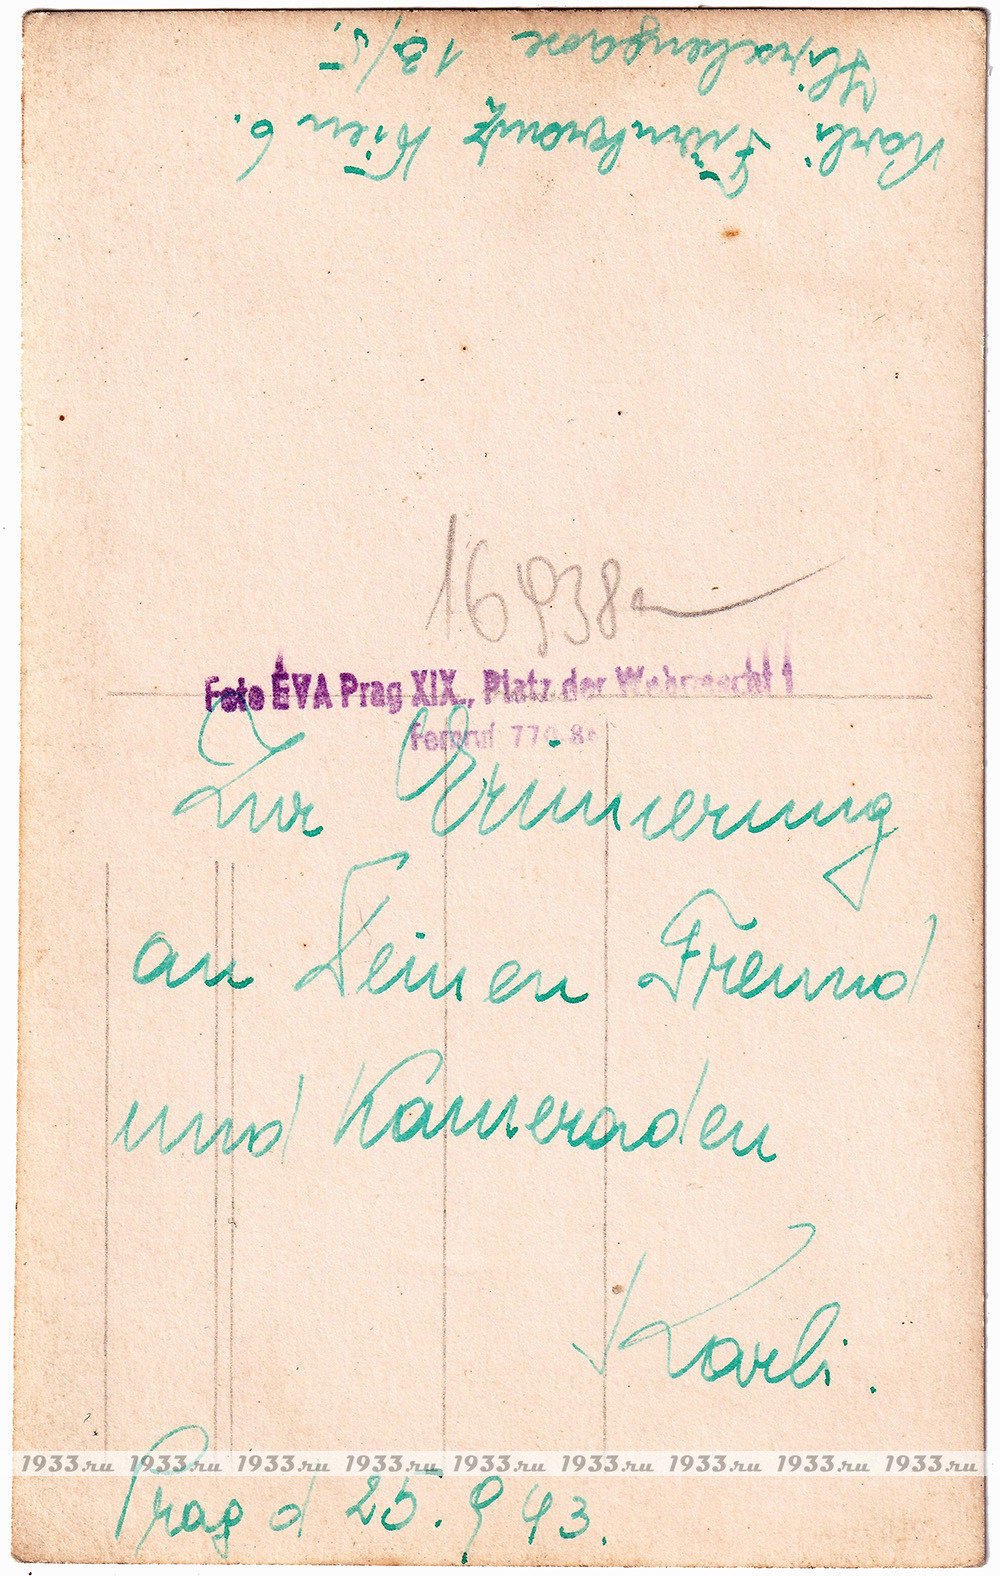 Karli Fürnkranz Wien 6.
Hirschengasse 13/5.
16938a
Foto EVA Prag XIX., Platz der Wehrmacht 1
Fernruf 770-8
Zur Erinnerung
an Deinen Freund
und Kameraden
Karli.
Prag d 25. 9 43.
1933.ru 1933.ru 1933.ru 1933.ru 1933.ru 1933.ru 1933.ru 1933.ru 1933.ru